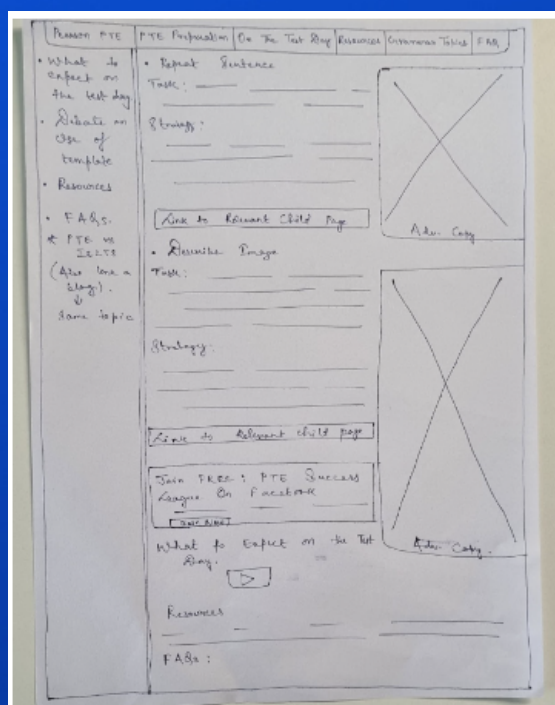 Pearson PTE
PTE Preparation
On The Test Day
Resources
Grammar Tables
FAQ
• What to
expect on
the test day
• Debate on
Use of
template
• Resources
• FAQs.
* PTE vs
IELTS
(Also
a
blog).
Same topic
• Repeat Sentence
Task:
Strategy:
Link to Relevant Child Page
• Describe Image
Task:
Strategy:
Link to Relevant Child page
Join FREE: PTE Success
League On Facebook
What to Expect on the Test
Day.
Resources
FAQs:
Adv. Copy
Adv. Copy.